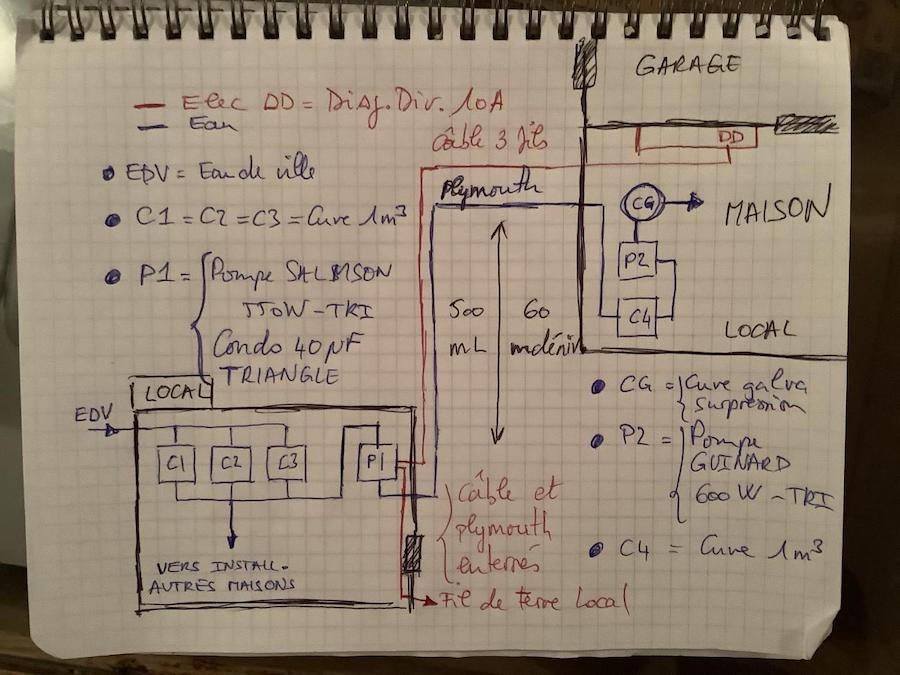 GARAGE
Elec DD = Disj. Div. 10A
Eau
câble 3 fils
DD
EDV = Eau de ville
plymouth
CG
MAISON
C1 = C2 = C3 = Cuve 1m³
P2
P1 = Pompe SALMSON
550W - TRI
Condo 40µF
TRIANGLE
500
mL
60
C4
LOCAL
LOCAL
EDV
CG = Cuve galva
surpression
C1
C2
C3
P1
P2 = Pompe
GUINARD
600 W - TRI
Câble et
plymouth
enterrés
C4 = Cuve 1m³
VERS INSTALL.
AUTRES MAISONS
Fil de terre local